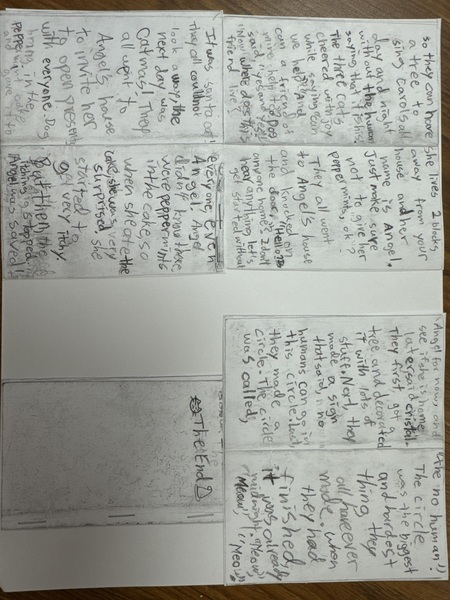 so they can have
a tree to
sing carols all
day and night
without the human
saying that
The three cats
cheered with joy
while saying, can
we help? and
can a friend of
mine help too?
said, yes and yes!
Now where does this
friend live?
She lives 2 blocks
away from your
house and her
name is Angel.
Just make sure
not to give her
peppermints, ok?
They all went
to Angel's house
and knocked on
the door, "Hello?
anyone home? I don't
hear anything, let's
get started without
Angel for now and
see if she is home
later said cristal.
They first got a
tree and decorated
it with lots of
stuff. Next, they
made a sign
that said, no
humans can go in
this circle. Last
they made a
circle. The circle
was called,
the no human!
The circle
was the biggest
and hardest
thing they
all have ever
made. when
they had
finished,
it was already
midnight. "Meow,"
"Meow," "Meow,"
It was santa and
they all could not
look away. the
next day was
Catmas! They
all went to
Angel's house
to invite her
to open presents
with everyone. Dog
bring in the
peppermint cake
and gave it to
everyone, even
Angel. Angel
didn't know there
were peppermints
in the cake, so
when she ate the
cake, she was very
surprised. she
started to
get very itchy.
But then the
itching stopped.
Angel was saved!
The End